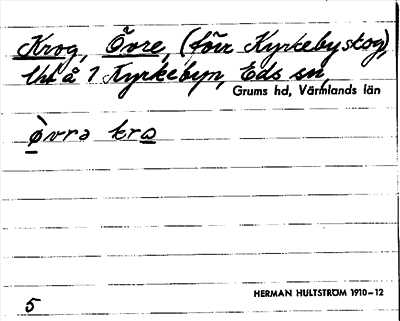 Krog, Övre, (förr Kyrkebyskog),
Uu å 1 Kyrkebyn, Eds sn,
Grums hd, Värmlands län
ò̱vra kro̱
HERMAN HULTSTRÖM 1910–12
5